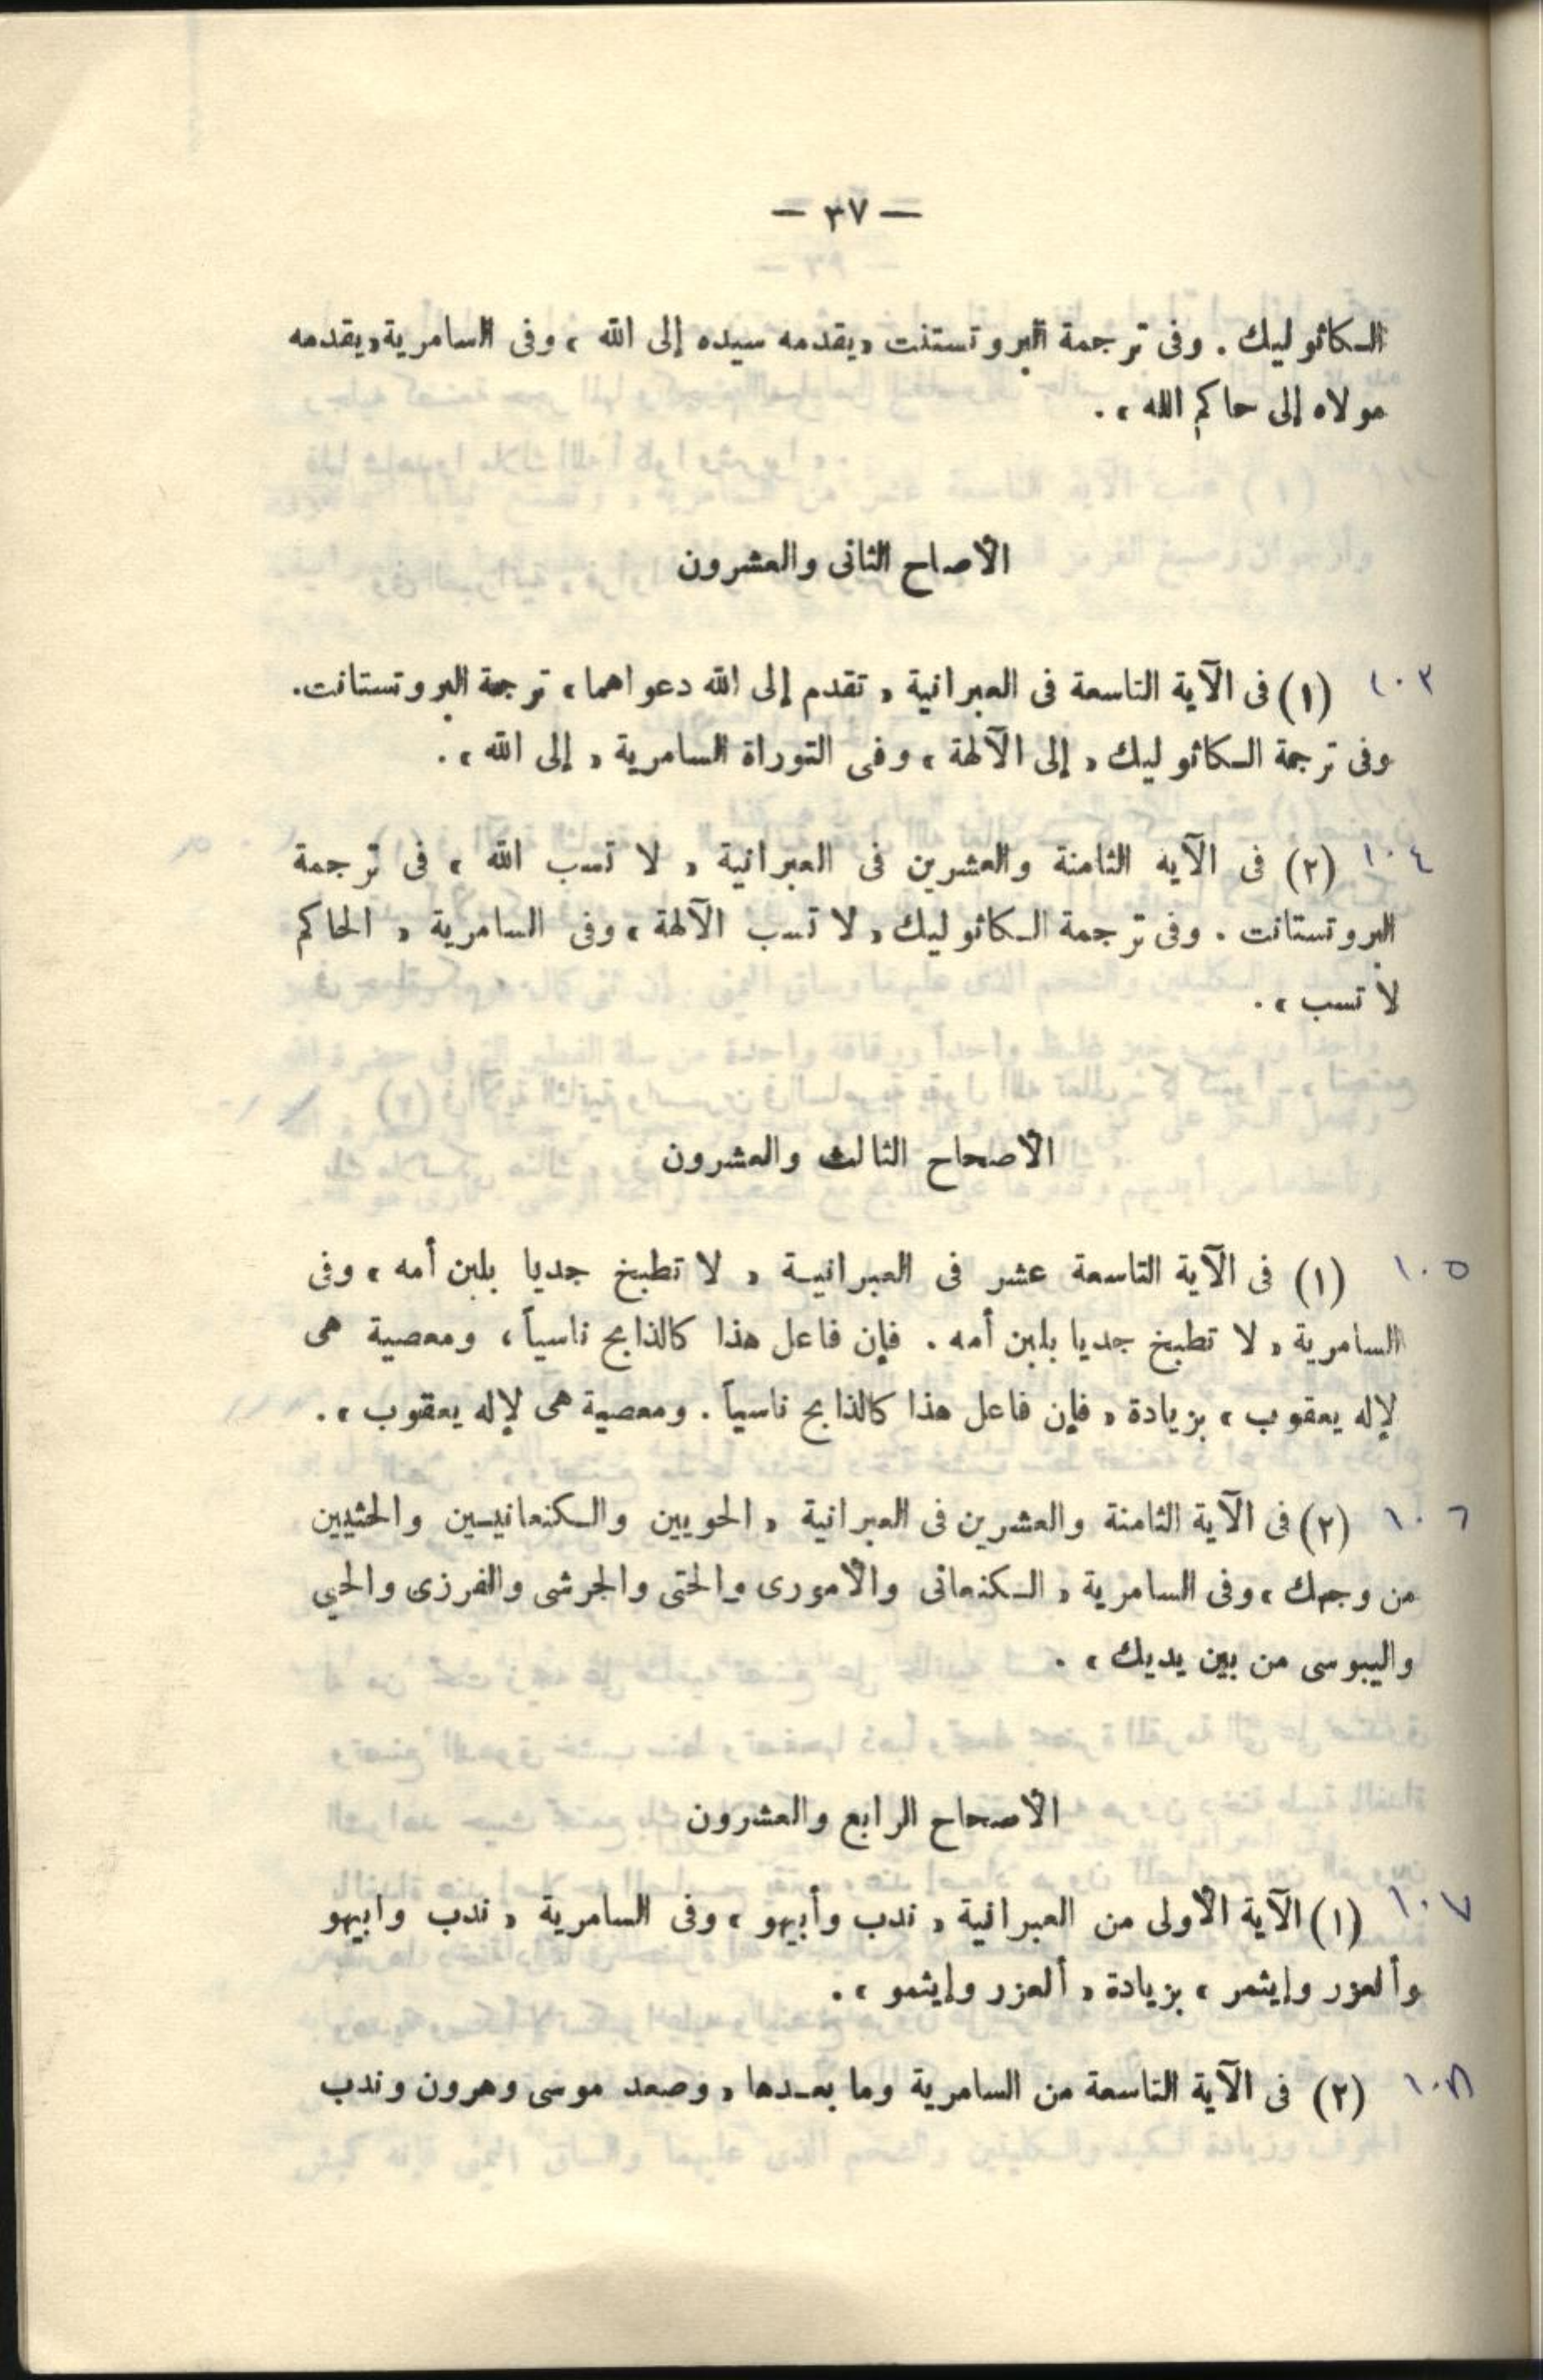 — ٣٧ —
الكاثوليك . وفى ترجمة البروتستنت «يقدمه سيده إلى الله» وفى السامرية «يقدمه
مولاه إلى حاكم الله» .
الأصاح الثانى والعشرون
١٠٣ (١) فى الآية التاسعة فى العبرانية « تقدم إلى الله دعواهما » ترجمة البروتستانت.
وفى ترجمة الكاثوليك « إلى الآلهة » وفى التوراة السامرية « إلى الله » .
١٠٤ (٢) فى الآيه الثامنة والعشرين فى العبرانية « لا تسب الله » فى ترجمة
البروتستانت . وفى ترجمة الكاثوليك « لا تسب الآلهة » وفى السامرية « الحاكم
لا تسب » .
الأصحاح الثالث والعشرون
١٠٥ (١) فى الآية التاسعة عشر فى العبرانية « لا تطبخ جديا بلبن أمه » وفى
السامرية « لا تطبخ جديا بلبن أمه . فإن فاعل هذا كالذابح ناسياً ، ومعصية هى
لإله يعقوب » بزيادة « فإن فاعل هذا كالذابح ناسياً . ومعصية هى لإله يعقوب » .
١٠٦ (٢) فى الآية الثامنة والعشرين فى العبرانية « الحويين والكنعانيين والحثيين
من وجهك » وفى السامرية « الكنعانى والأمورى والحتى والجرشى والفرزى والحيى
واليبوسى من بين يديك » .
الأصحاح الرابع والعشرون
١٠٧ (١) الآية الأولى من العبرانية « ندب وأبيهو » وفى السامرية « ندب وابيهو
وألعزر وإيثمر » بزيادة « ألعزر وإيثمو » .
١٠٨ (٢) فى الآية التاسعة من السامرية وما بعدها « وصعد موسى وهرون وندب